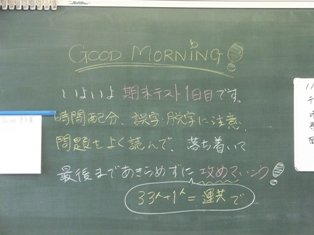 GOOD MORNING!
いよいよ期末テスト1日目です。
時間配分、誤字・脱字に注意、
問題をよく読んで、落ち着いて
最後まであきらめずに攻めていこう
33人+1人=